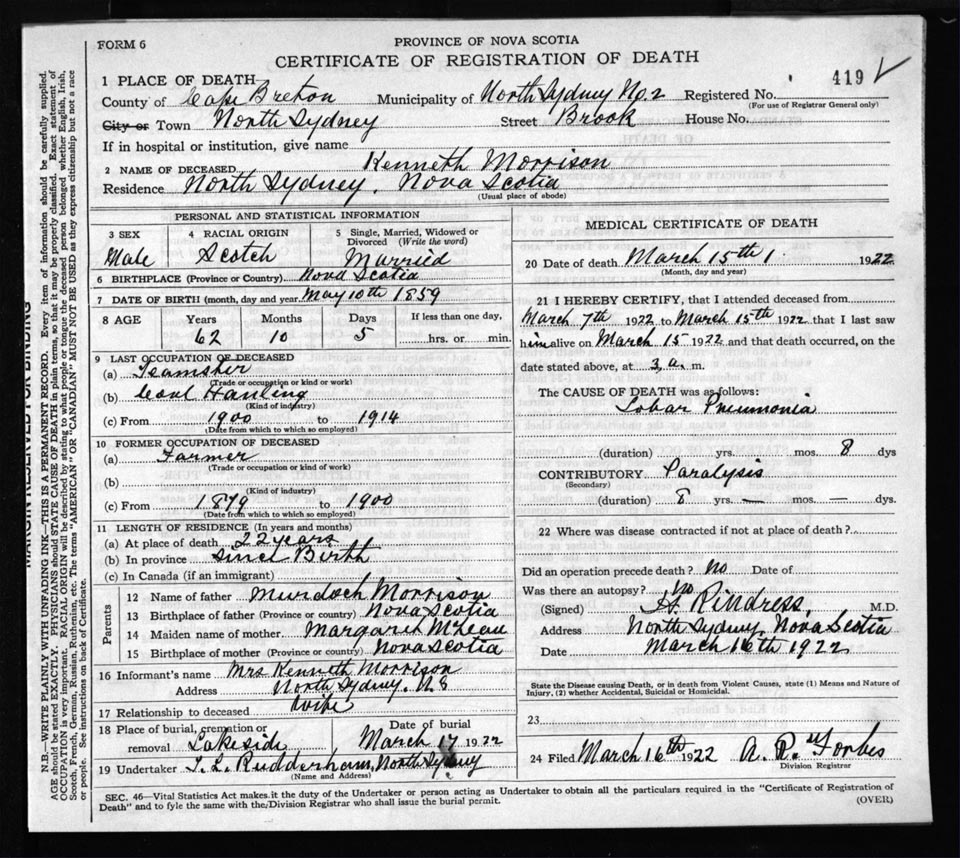 FORM 6
PROVINCE OF NOVA SCOTIA
CERTIFICATE OF REGISTRATION OF DEATH
419
1 PLACE OF DEATH
County of Cape Breton Municipality of North Sydney No. 2 Registered No.
(For use of Registrar General only)
City or Town North Sydney Street Brook House No.
If in hospital or institution, give name
2 NAME OF DECEASED Kenneth Morrison
Residence North Sydney, Nova Scotia
(Usual place of abode)
PERSONAL AND STATISTICAL INFORMATION
3 SEX 4 RACIAL ORIGIN 5 Single, Married, Widowed or Divorced (Write the word)
Male Scotch Married
6 BIRTHPLACE (Province or Country) Nova Scotia
7 DATE OF BIRTH (month, day and year) May 10th 1859
8 AGE Years Months Days If less than one day,
62 10 5 hrs. or min.
9 LAST OCCUPATION OF DECEASED
(a) Teamster
(Trade or occupation or kind or work)
(b) Coal Hauling
(Kind of industry)
(c) From 1900 to 1914
(Date from which to which so employed)
10 FORMER OCCUPATION OF DECEASED
(a) Farmer
(Trade or occupation or kind of work)
(b)
(Kind of industry)
(c) From 1879 to 1900
(Date from which to which so employed)
11 LENGTH OF RESIDENCE (In years and months)
(a) At place of death 22 years
(b) In province since Birth
(c) In Canada (if an immigrant)
Parents
12 Name of father Murdoch Morrison
13 Birthplace of father (Province or country) Nova Scotia
14 Maiden name of mother Margaret McLean
15 Birthplace of mother (Province or country) Nova Scotia
16 Informant's name Mrs Kenneth Morrison
Address North Sydney. N S
17 Relationship to deceased wife
18 Place of burial, cremation or removal Lakeside Date of burial March 17 1922
19 Undertaker T. L. Rudderham, North Sydney
(Name and Address)
MEDICAL CERTIFICATE OF DEATH
20 Date of death March 15th 1922
(Month, day and year)
21 I HEREBY CERTIFY, that I attended deceased from
March 7th 1922 to March 15th 1922 that I last saw
him alive on March 15 1922 and that death occurred, on the
date stated above, at 3 a. m.
The CAUSE OF DEATH was as follows:
Lobar Pneumonia
(duration) yrs. mos. 8 dys
CONTRIBUTORY Paralysis
(Secondary)
(duration) 8 yrs. — mos. — dys.
22 Where was disease contracted if not at place of death?
Did an operation precede death? No Date of
Was there an autopsy? No
(Signed) H. Rindress, M.D.
Address North Sydney, Nova Scotia
Date March 16th 1922
State the Disease causing Death, or in death from Violent Causes, state (1) Means and Nature of
Injury, (2) whether Accidental, Suicidal or Homicidal.
23
24 Filed March 16th 1922 A. R. Forbes
Division Registrar
SEC. 46—Vital Statistics Act makes it the duty of the Undertaker or person acting as Undertaker to obtain all the particulars required in the "Certificate of Registration of
Death" and to fyle the same with the Division Registrar who shall issue the burial permit.
(OVER)
MARGIN RESERVED FOR BINDING
N.B.—WRITE PLAINLY WITH UNFADING INK—THIS IS A PERMANENT RECORD. Every item of information should be carefully supplied.
AGE should be stated EXACTLY. PHYSICIANS should STATE CAUSE OF DEATH in plain terms, so that it may be properly classified. Exact statement of
OCCUPATION is very important. RACIAL ORIGIN will be described by stating to what people or tongue the deceased person belonged, whether English, Irish,
Scotch, French, German, Russian, Ruthenian, etc. The terms "AMERICAN" OR "CANADIAN" MUST NOT BE USED as they express citizenship but not a race
or people. See instructions on back of Certificate.